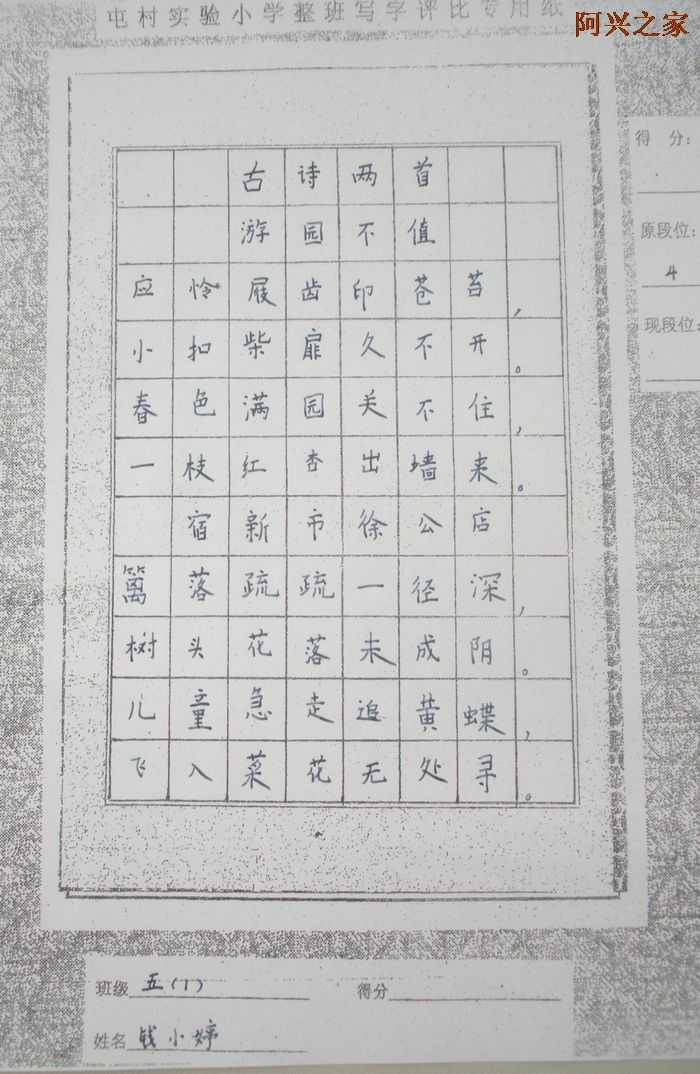 屯村实验小学整班写字评比专用纸
阿兴之家
得 分:
原段位:
4
现段位:
古诗两首
游园不值
应怜屐齿印苍苔,
小扣柴扉久不开。
春色满园关不住,
一枝红杏出墙来。
宿新市徐公店
篱落疏疏一径深,
树头花落未成阴。
儿童急走追黄蝶,
飞入菜花无处寻。
班级 五(1) 得分
姓名 钱小婷